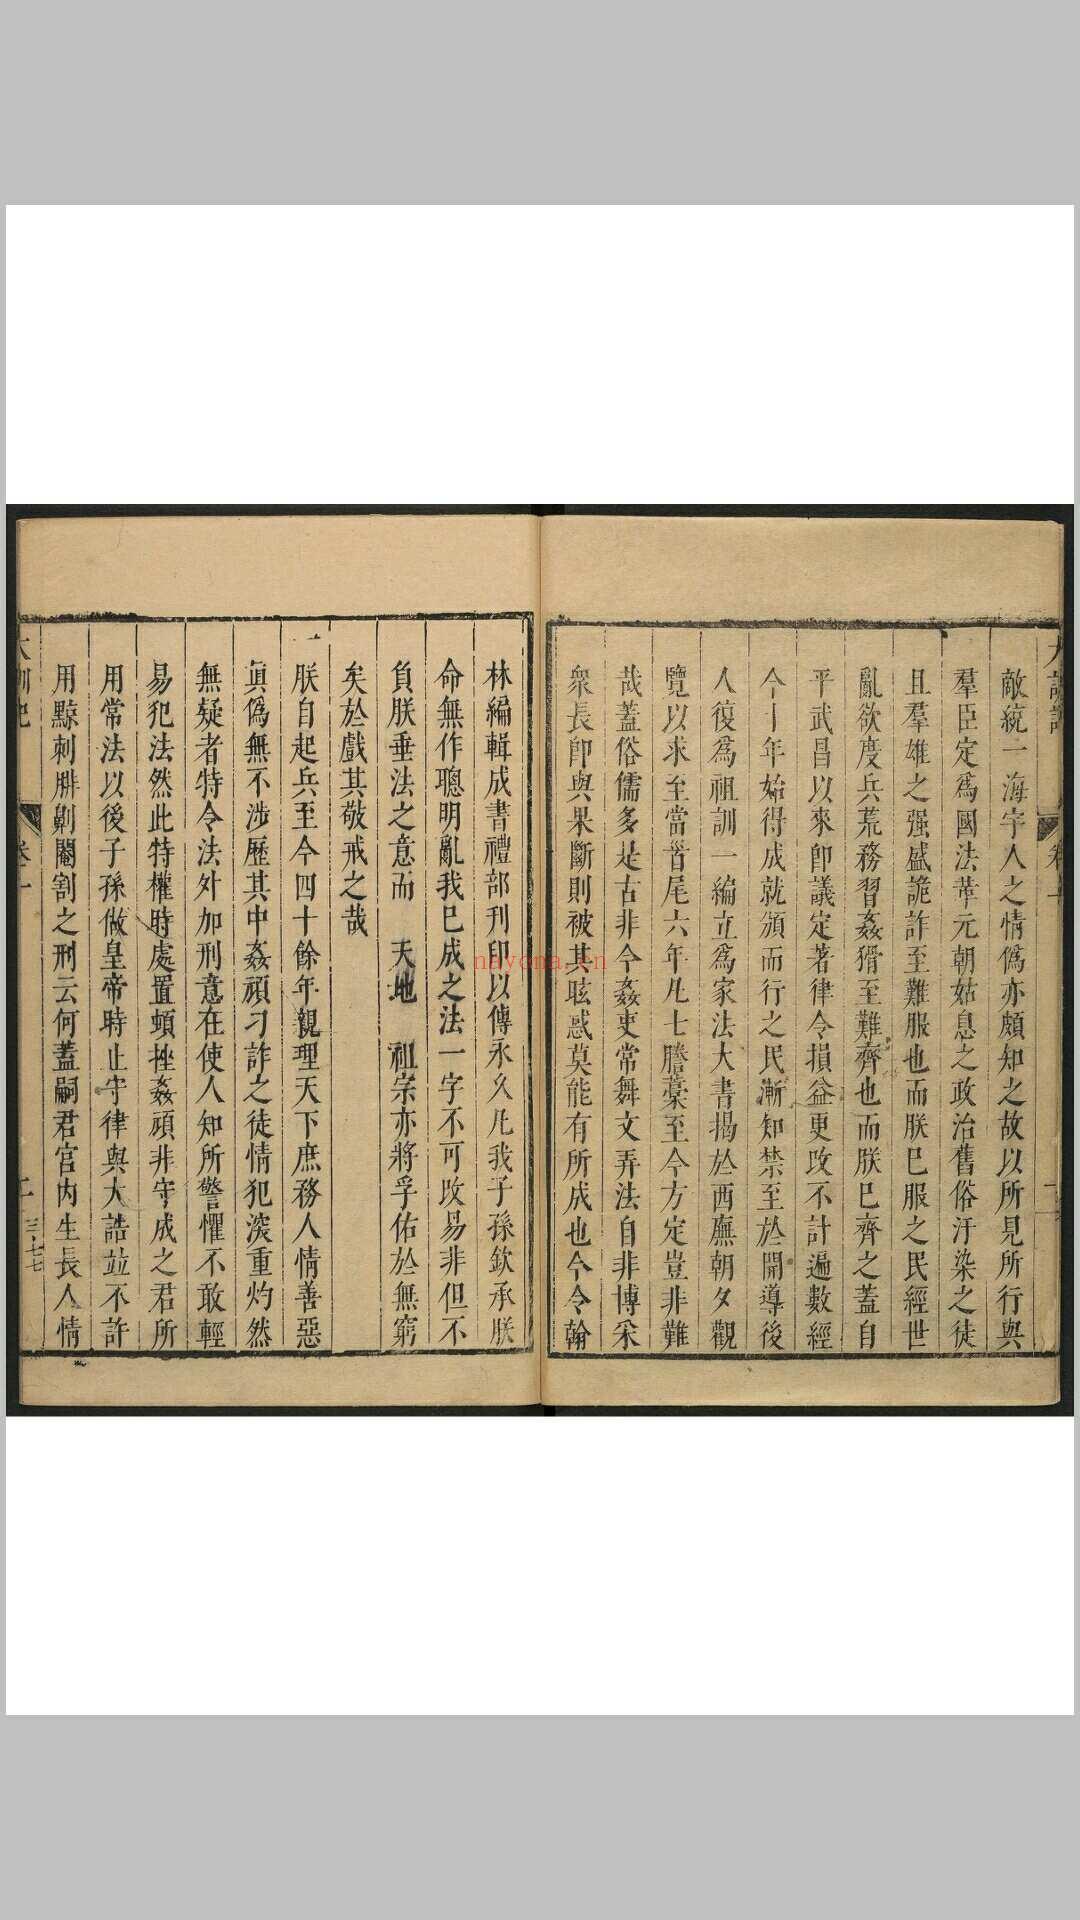 敵統一海宇人之情僞亦頗知之故以所見所行與
羣臣定爲國法革元朝姑息之政治舊俗汙染之徒
且羣雄之强盛詭詐至難服也而朕已服之民經世
亂欲度兵荒務習姦猾至難齊也而朕已齊之蓋自
平武昌以來卽議定著律令損益更改不計遍數經
今十年始得成就頒而行之民漸知禁至於開導後
人復爲祖訓一編立爲家法大書揭於西廡朝夕觀
覽以求至當首尾六年凡七謄藁至今方定豈非難
哉蓋俗儒多是古非今姦吏常舞文弄法自非博采
衆長卽與果斷則被其眩惑莫能有所成也今令翰
林編輯成書禮部刊印以傳永久凡我子孫欽承朕
命無作聰明亂我已成之法一字不可改易非但不
負朕垂法之意而 天地 祖宗亦將孚佑於無窮
矣於戲其敬戒之哉
一
朕自起兵至今四十餘年親理天下庶務人情善惡
眞僞無不涉歷其中姦頑刁詐之徒情犯深重灼然
無疑者特令法外加刑意在使人知所警懼不敢輕
易犯法然此特權時處置頓挫姦頑非守成之君所
用常法以後子孫做皇帝時止守律與大誥並不許
用黥刺腓劓閹割之刑云何蓋嗣君宮内生長人情
三七七
nayona.cn